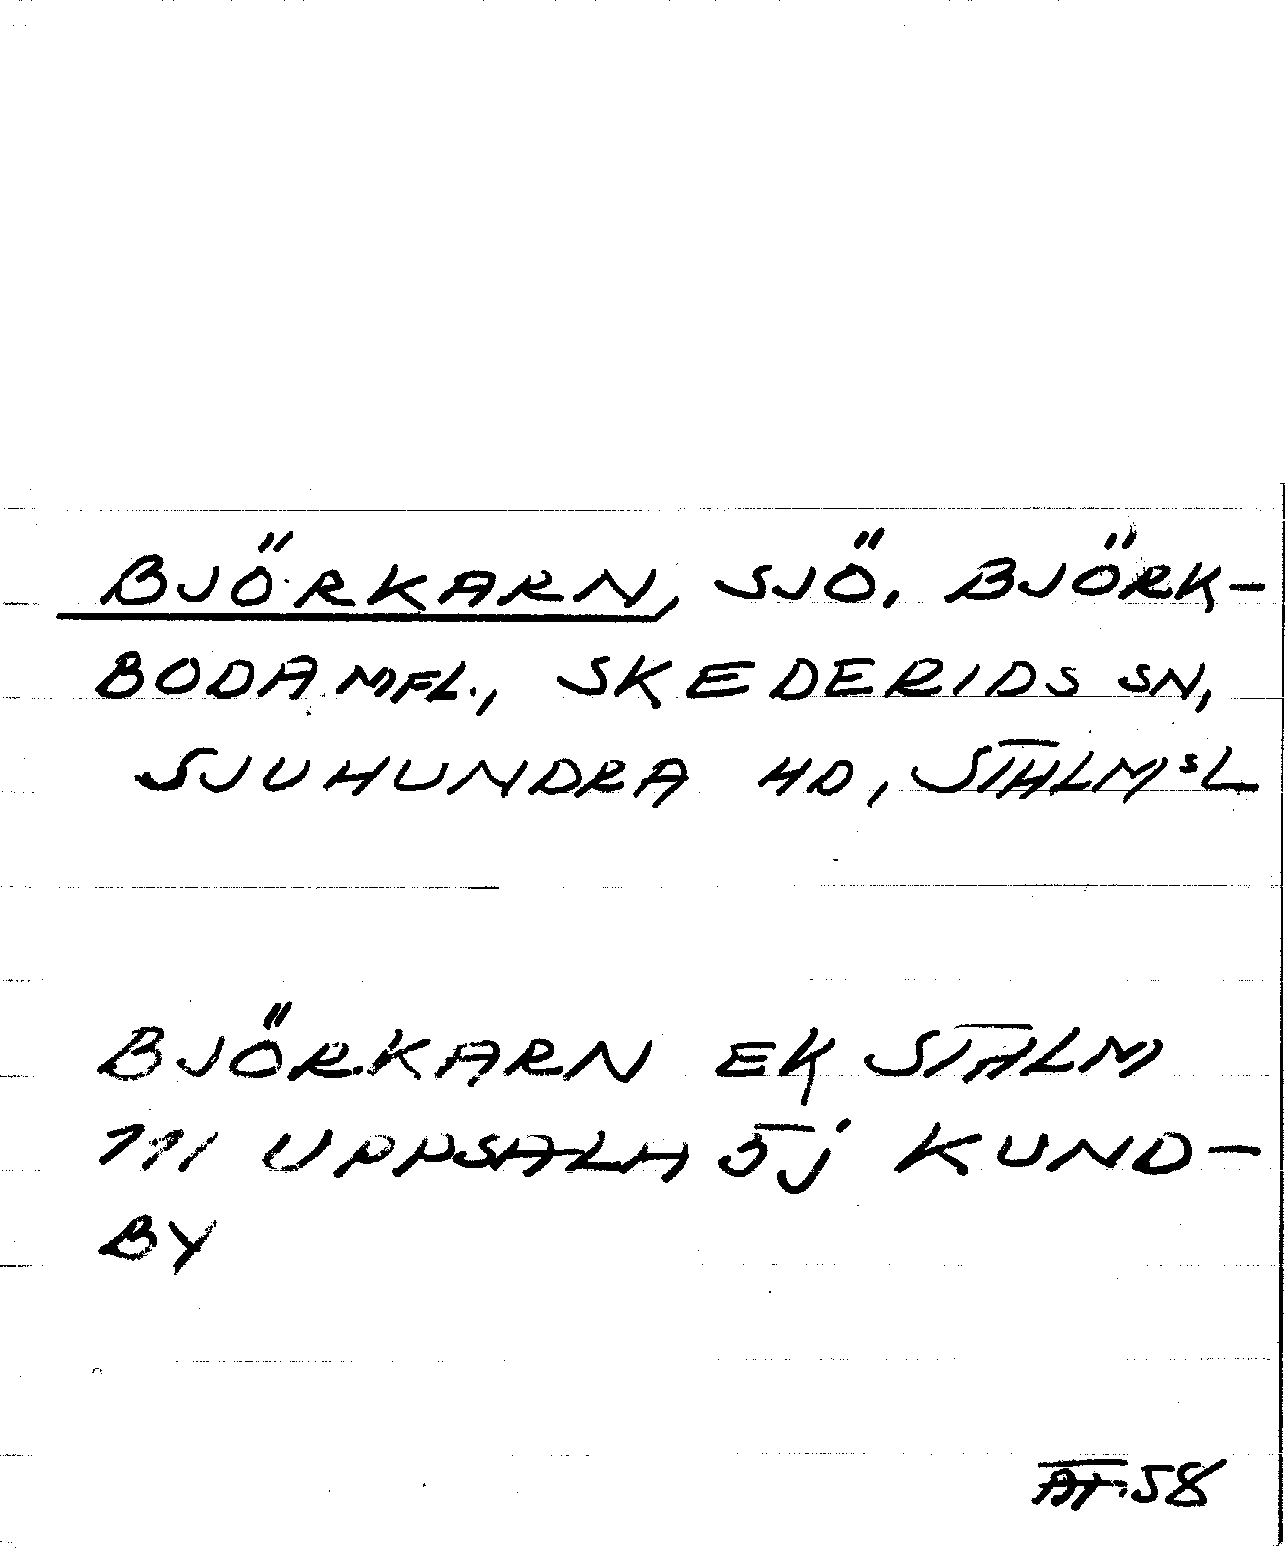 BJÖRKARN, SJÖ, BJÖRK-
BODA MFL., SKEDERIDS SN,
SJUHUNDRA HD, STHLMSL
BJÖRKARN EK STHLM
111 UPPSALA 5j KUND-
BY
AT. 58